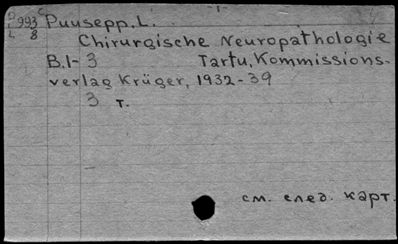 993 Puusepp, L.
8
Chirurgische Neuropathologie
B. 1-3 Tartu, Kommissions-
verlag Krüger, 1932-39
3 т.
см. след. карт.